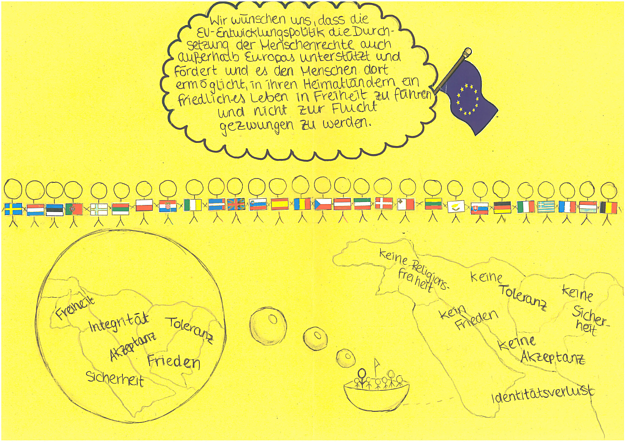 Wir wünschen uns, dass die
EU-Entwicklungspolitik die Durch-
setzung der Menschenrechte auch
außerhalb Europas unterstützt und
fördert und es den Menschen dort
ermöglicht, in ihren Heimatländern ein
friedliches Leben in Freiheit zu führen
und nicht zur Flucht
gezwungen zu werden.
Freiheit
Integrität
Toleranz
Akzeptanz
Frieden
Sicherheit
keine Religions-
freiheit
keine
Toleranz
keine
Sicher-
heit
kein
Frieden
keine
Akzeptanz
Identitätsverlust